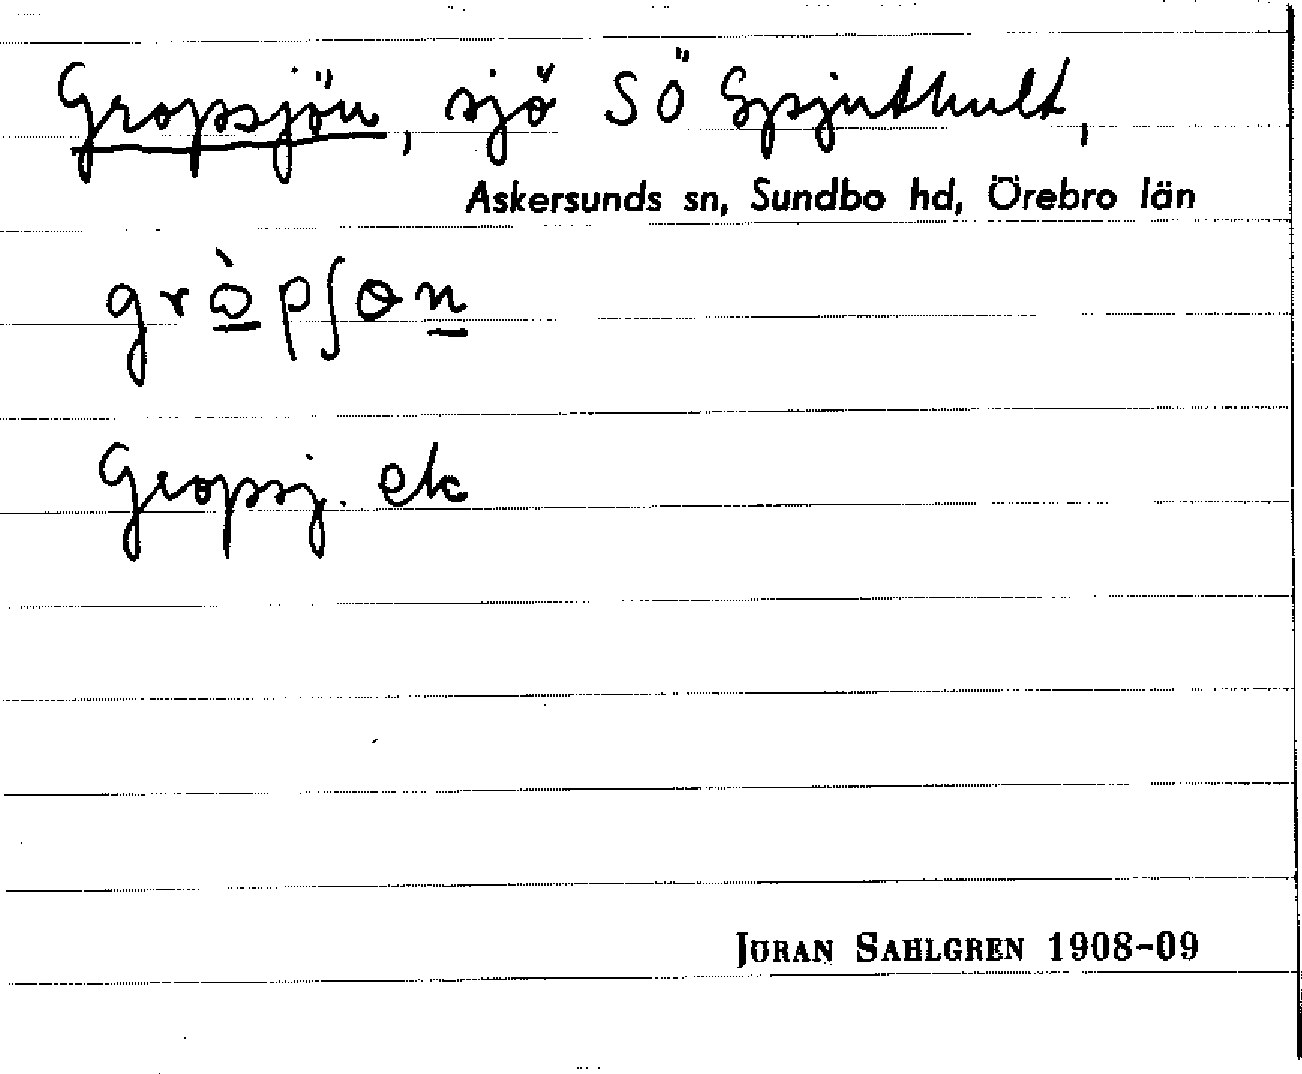 Gropsjön, sjö SÖ Spjuthult,
Askersunds sn, Sundbo hd, Örebro län
grò̱pʃɵṉ
Gropsj. ek
JÖRAN SAHLGREN 1908-09